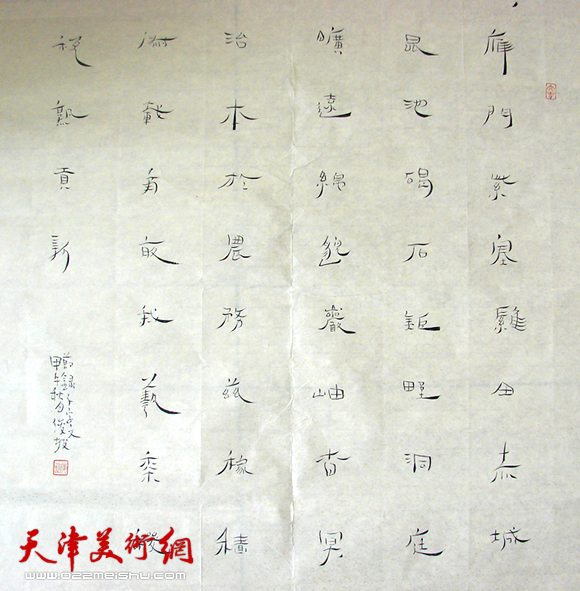 雁門紫塞雞田赤城
昆池碣石鉅野洞庭
曠遠綿邈嚴岫杳冥
治本於農務茲稼穡
俶載南畝我藝黍稷
稅熟貢新
節錄千字文
甲午秋月俊
天津美術網
www.022meishu.com